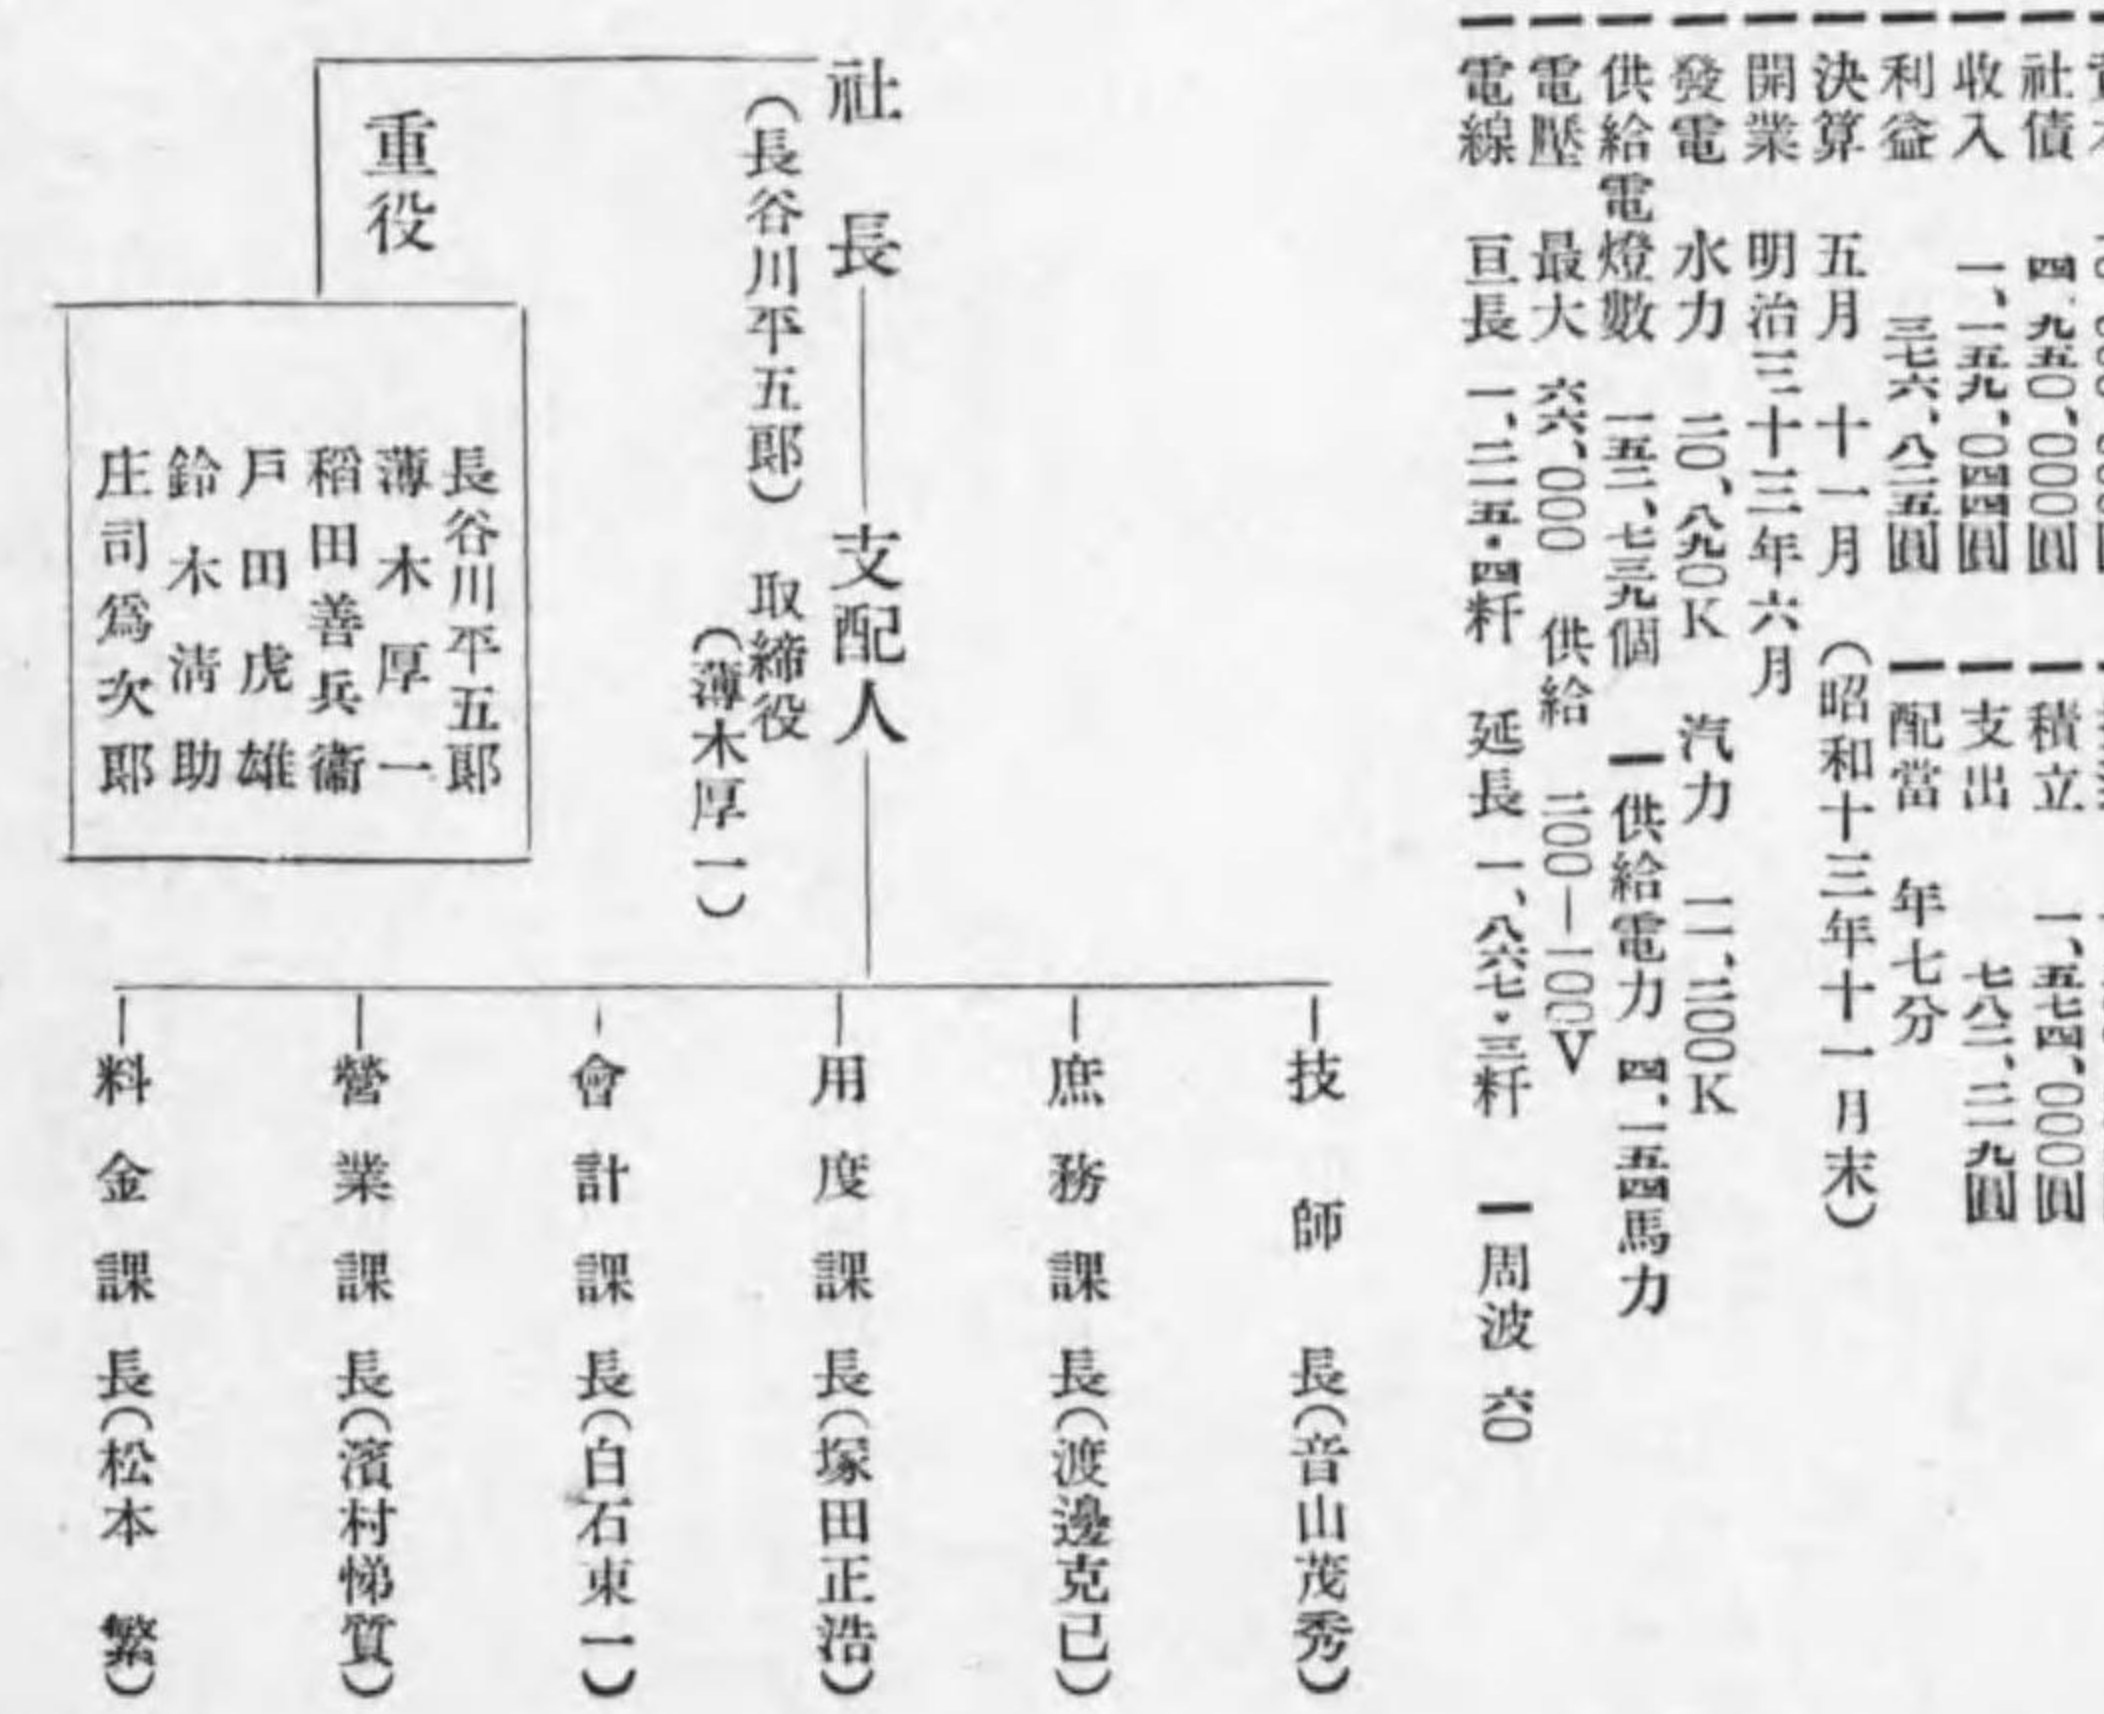 一社債 四、九五〇、〇〇〇圓 一積立 一、五七四、〇〇〇圓
一收入 一、一五九、〇四四圓 一支出 七八二、二一九圓
一利益 三七六、八二五圓 一配當 年七分
一決算 五月 十一月 (昭和十三年十一月末)
一開業 明治三十三年六月
一發電 水力 二〇、八九〇K 汽力 一一、二〇〇K
一供給電燈數 一五二、七三九個 一供給電力 四、一五四馬力
一電壓 最大 六六、〇〇〇 供給 二〇〇―一〇〇V
一電線 亘長 一、二一五・四粁 延長 一、八六七・三粁 一周波 六〇
社長
(長谷川平五郎)
支配人
取締役
(薄木厚一)
重役
長谷川平五郎
薄木厚一
稻田善兵衞
戸田虎雄
鈴木淸助
庄司爲次郎
技師長(音山茂秀)
庶務課長(渡邊克己)
用度課長(塚田正浩)
會計課長(白石東一)
營業課長(濱村悌質)
料金課長(松本繁)